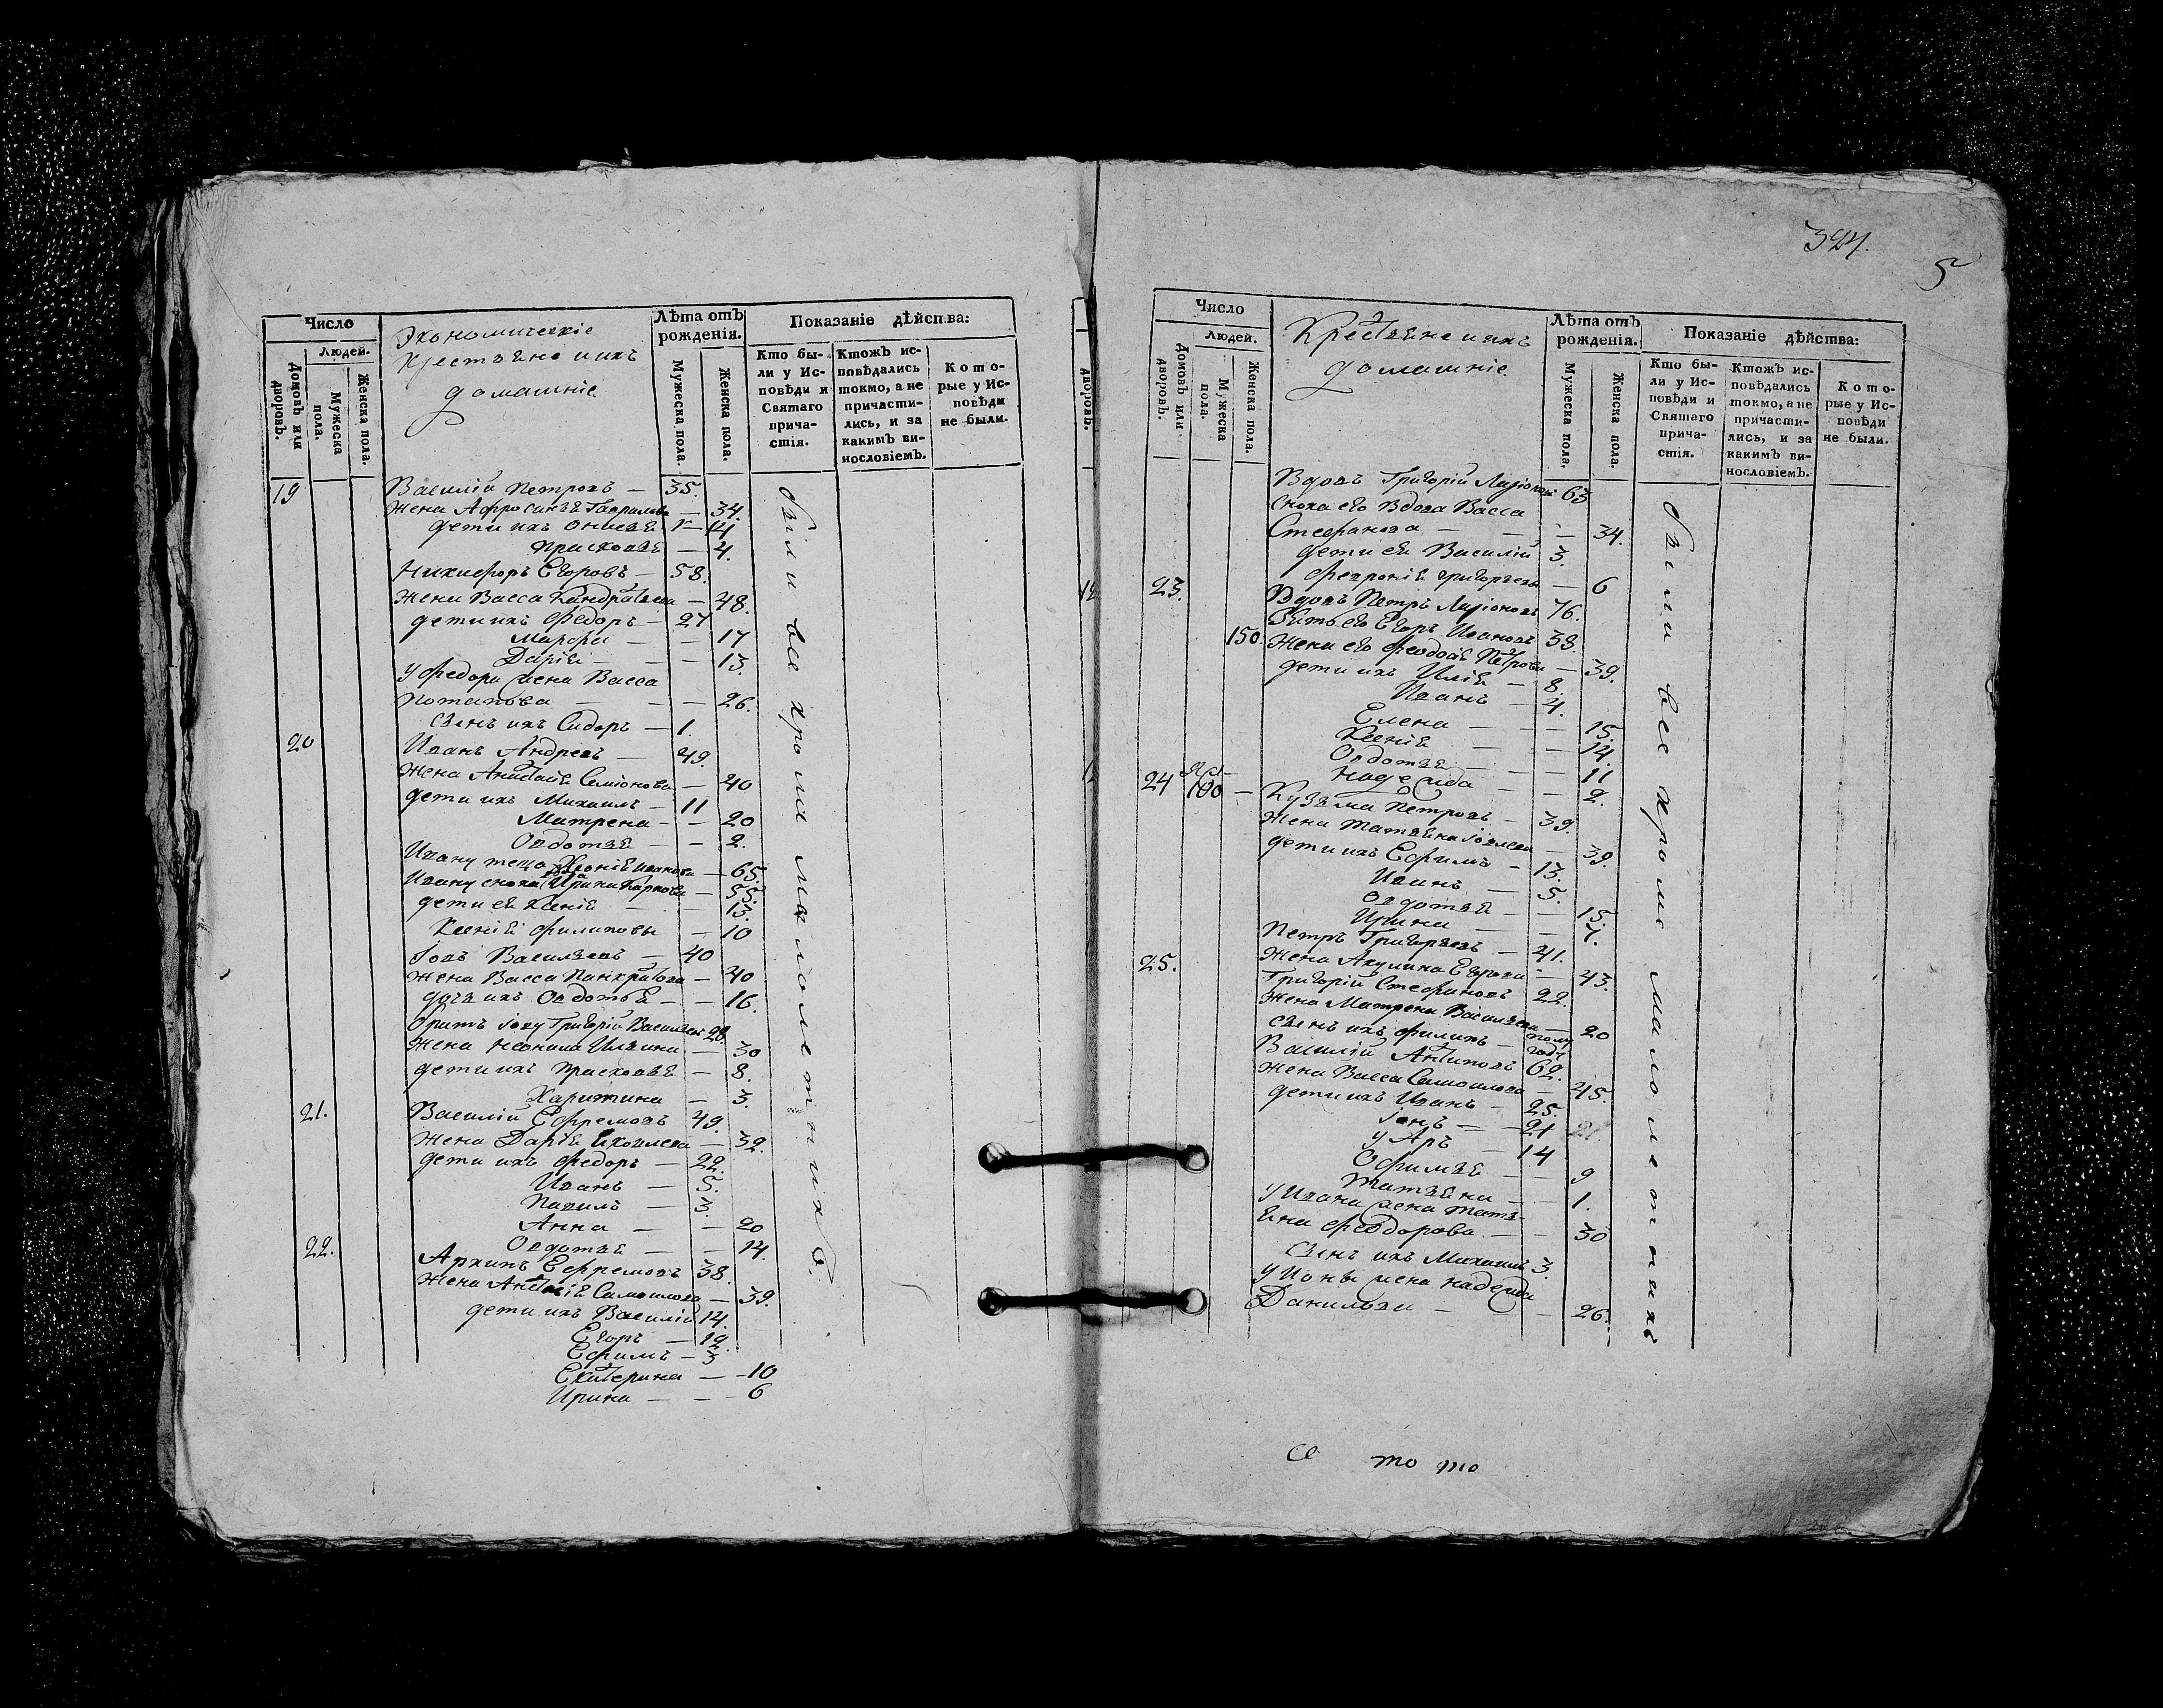 Число
Людей.
Домовъ или дворовъ.
Мужеска пола.
Женска пола.
Экономическіе
крестьяне и ихъ
домашніе
Лѣта отъ рожденія.
Мужеска пола.
Женска пола.
Показаніе дѣйства:
Кто бы-
ли у Ис-
повѣди и
Святаго
прича-
стія.
Ктожъ ис-
повѣдались
токмо, а не
причасти-
лись, и за
какимъ ви-
нословіемъ.
Кото-
рые у Ис-
повѣди
не были.
19 Василій Петровъ — 35.
Жена Афросинья Гаврилова — 34.
дети ихъ
Прасковья — 4.
Никифоръ Егоровъ — 58.
Жена Васса Кандратьева — 48.
дети ихъ Федоръ — 27
Марфа — — 17
Дарья — — 13.
у Федора жена Васса
Потапова — — 26.
сынъ ихъ Сидоръ — 1.
20 Иванъ Андреевъ — 49.
Жена Анастасія Семіонова — 40
дети ихъ Михаилъ — 11
Матрена — — 20
Овдотья — — 2.
Ивану теща Ивановна — 65.
Ивану сноха вдова Ирина Карпова — 55.
дети ея — — 13.
Ксенія Филиповы — 10
Іовъ Васильевъ — 40
Жена Васса Панкратова — 40
дочь ихъ Овдотья — — 16.
братъ Іову Григорій Васильевъ 28.
Жена Неонила Ильина — 30
дети ихъ Прасковья — 8.
Харитина — 3.
21. Василій Ефремовъ 49.
Жена Дарья Яковлева — 39.
дети ихъ Федоръ — 22.
Иванъ — 5.
Павилъ — 3.
Анна — — 20
Овдотья — — 14.
22. Архипъ Ефремовъ 38.
Жена Анастасія Самоилова — 39.
дети ихъ Василій 14.
Егоръ — 12.
Ефимъ — 3
Екатерина — — 10
Ирина — — 6
были все кроме малолетнихъ.
324.
5
Число
Людей.
Домовъ или дворовъ.
Мужеска пола.
Женска пола.
Крестьяне и ихъ
домашніе
Лѣта отъ рожденія.
Мужеска пола.
Женска пола.
Показаніе дѣйства:
Кто бы-
ли у Ис-
повѣди и
Святаго
прича-
стія.
Ктожъ ис-
повѣдались
токмо, а не
причасти-
лись, и за
какимъ ви-
нословіемъ.
Кото-
рые у Ис-
повѣди
не были.
Вдовъ Григорій Ларіоновъ 63
сноха его вдова Васса
Стефанова — — 34.
дети ея Василій 3.
Феврония Григорьевы — 6
23. Вдовъ Петръ Ларіоновъ 76.
Зять его Егоръ Ивановъ 38.
150. Жена его Феодосія Петрова — 39.
дети ихъ Илья — 8.
Иванъ — 4.
Елена — — 15.
Ксенія — — 14.
Овдотья — — 11
Надежда — — 2.
24 100 — Кузьма Петровъ — 39.
Жена Татьяна Іовлева — 39.
дети ихъ Ефимъ — 13.
Иванъ — 5.
Овдотья — — 15.
Ирина — — 7.
Петръ Григорьевъ — 41.
25. Жена Акулина Егорова — 43.
Григорій Стефановъ 22.
Жена Матрена Васильева — 20
сынъ ихъ Филипъ — полу года
Василій Антиповъ 62.
Жена Васса Самоилова — 45.
дети ихъ Иванъ — 25.
Іонъ — 21
Уаръ — 14
Офимья — — 9
Татьяна — — 1.
у Ивана жена Татья-
на Феодорова — — 30
сынъ ихъ Михаилъ 3.
у Ионы жена Надежда
Данильва — — 26.
были все кроме малолетнихъ